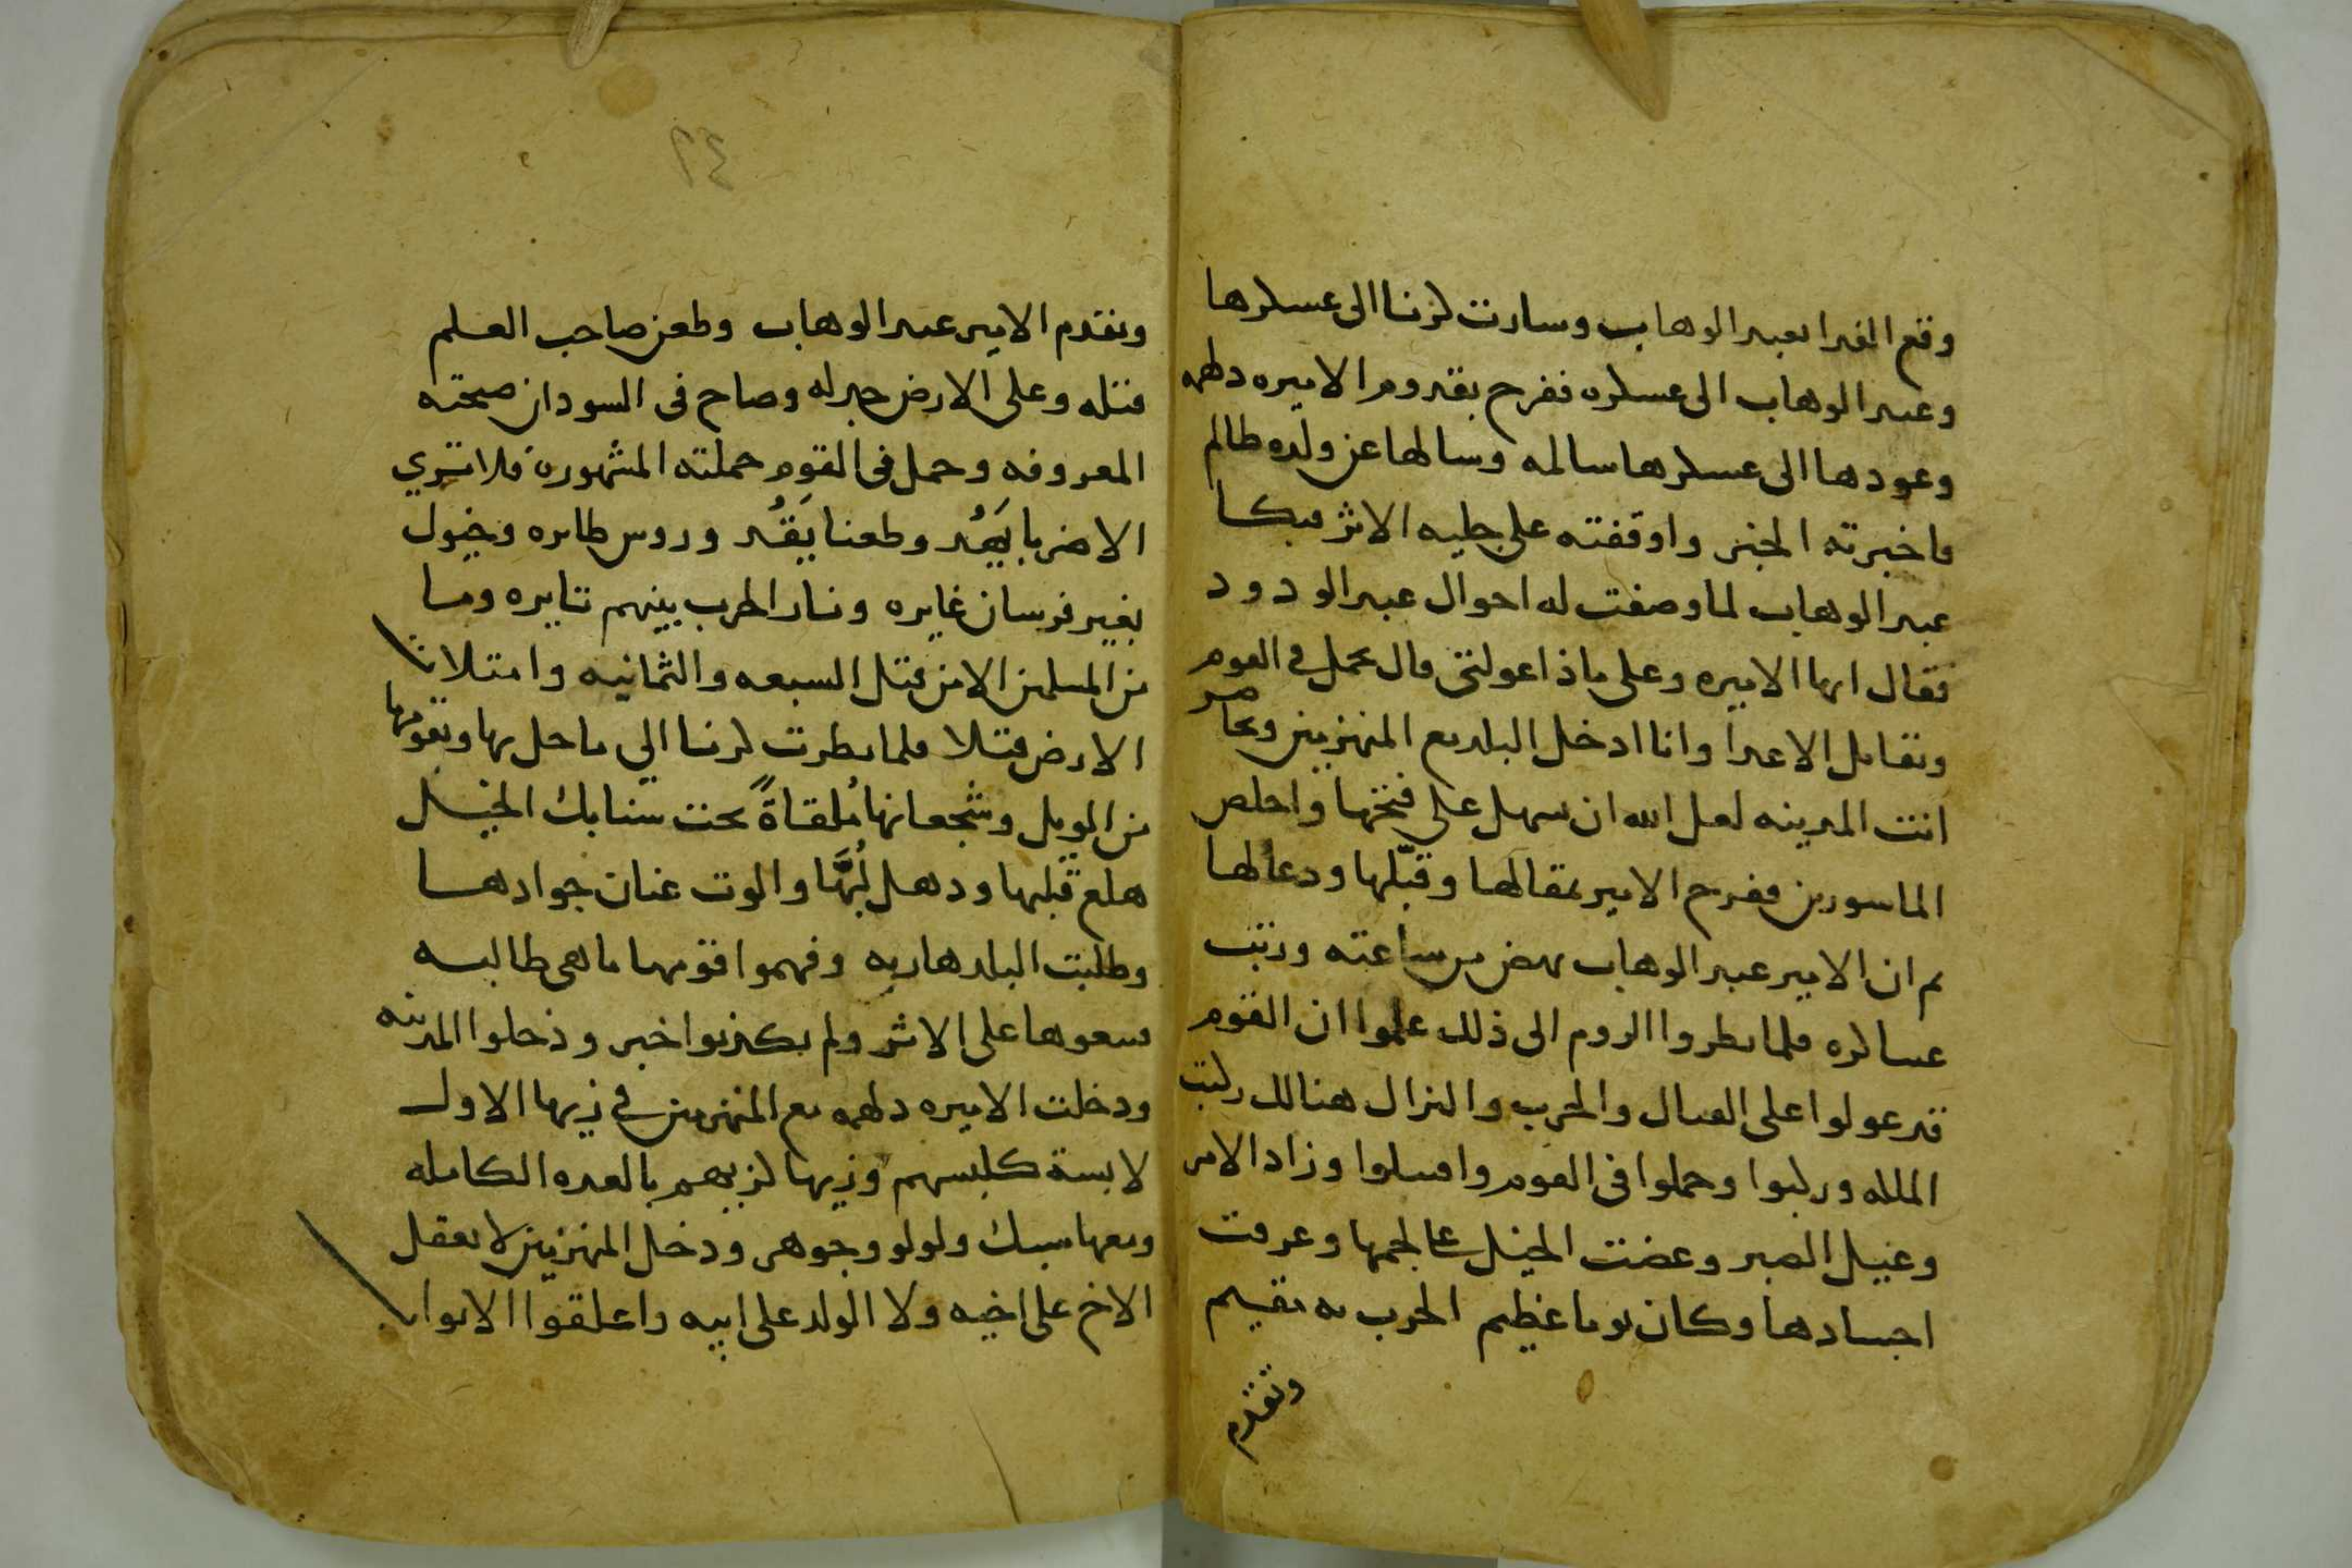 وقع الفدا بعبد الوهاب وسارت لزنا الى عسكرها
وعبد الوهاب الى عسكره ففرح بقدوم الاميره دلهمه
وعودها الى عسكرها سالمه وسالها عن ولده ظالم
فاخبرته الخبر واوقفته على جليه الاثر فبكا
عبد الوهاب لما وصفت له احوال عبد الودود
فقال ايها الاميره وعلى ماذا عولتى قال نحمل في القوم
ونقاتل الاعدا وانا ادخل البلد مع المنهزمين وتحاصر
انت المدينه لعل الله ان يسهل على فتحها واخلص
الماسورين ففرح الامير بمقالها وقبّلها ودعا لها
ثم ان الامير عبد الوهاب نهض من ساعته ورتب
عساكره فلما نظروا الروم الى ذلك علموا ان القوم
قد عولوا على القتال والحرب والنزال هنالك ركبت
الملكه وركبوا وحملوا فى القوم واقتتلوا وزاد الامر
وعيل الصبر وعضت الخيل على لجمها وعرقت
اجسادها وكان يوما عظيم الحرب به مقيم
وتقدم
٢٤
وتقدم الامير عبد الوهاب وطعن صاحب العلم
قتله وعلى الارض جدله وصاح فى السودان صيحته
المعروفه وحمل فى القوم حملته المشهوره فلا ترى
الا ضربا يَهُد وطعنا يَقُد وروس طايره وخيول
بغير فرسان غايره ونار الحرب بينهم ثايره وما
من المسلمين الا من قتل السبعه والثمانيه وامتلات
الارض قتلا فلما نظرت لزنا الي ما حل بها وبقومها
من الويل وشجعانها مُلقاةً تحت سنابك الخيل
هلع قلبها ودهل لُبُّها والوت عنان جوادها
وطلبت البلد هاربه وفهموا قومها ما هى طالبه
تبعوها على الاثر ولم يكذبوا خبر ودخلوا المدينه
ودخلت الاميره دلهمه مع المنهزمين في زيها الاول
لابسة كلبسهم وزيها كزيهم بالعده الكامله
ومعها سبك ولولو وجوهر ودخل المنهزمين لا يعقل
الاخ على اخيه ولا الولد على ابيه واغلقوا الابواب